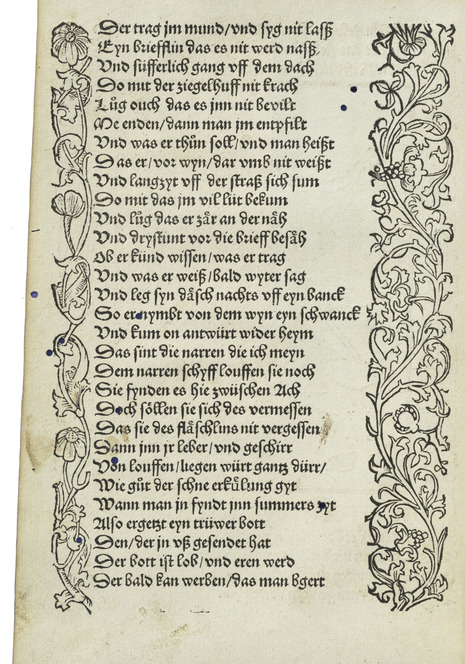 Der trag jm mund/vnd syg nit laſß
Eyn briefflin das es nit werd naſß
Vnd ſüfferlich gang vff dem dach
Do mit der ziegelhuff nit krach
Lüg ouch das es jnn nit bevilt
Me enden/dann man jm entpfilt
Vnd was er thün ſoll/vnd man heißt
Das er/vor wyn/dar vmb nit weißt
Vnd langzyt vff der ſtraß ſich ſum
Do mit das jm vil lüt bekum
Vnd lůg das er zår an der nåh
Vnd dryſtunt vor die brieff beſåh
Ob er künd wiſſen/was er trag
Vnd was er weiß/bald wyter ſag
Vnd leg ſyn dåſch nachts vff eyn banck
So er nymbt von dem wyn eyn ſchwanck
Vnd kum on antwürt wider heym
Das ſint die narren die ich meyn
Dem narren ſchyff louffen ſie noch
Sie fynden es hie zwüſchen Ach
Doch ſöllen ſie ſich des vermeſſen
Das ſie des flåſchlins nit vergeſſen
Dann jnn jr leber/vnd geſchirr
Von louffen/liegen würt gantz dürr/
Wie güt der ſchne erkůlung gyt
Wann man jn fyndt jnn ſummers zyt
Alſo ergetzt eyn trüwer bott
Den/der jn vß geſendet hat
Der bott iſt lob/vnd eren werd
Der bald kan werben/das man bgert